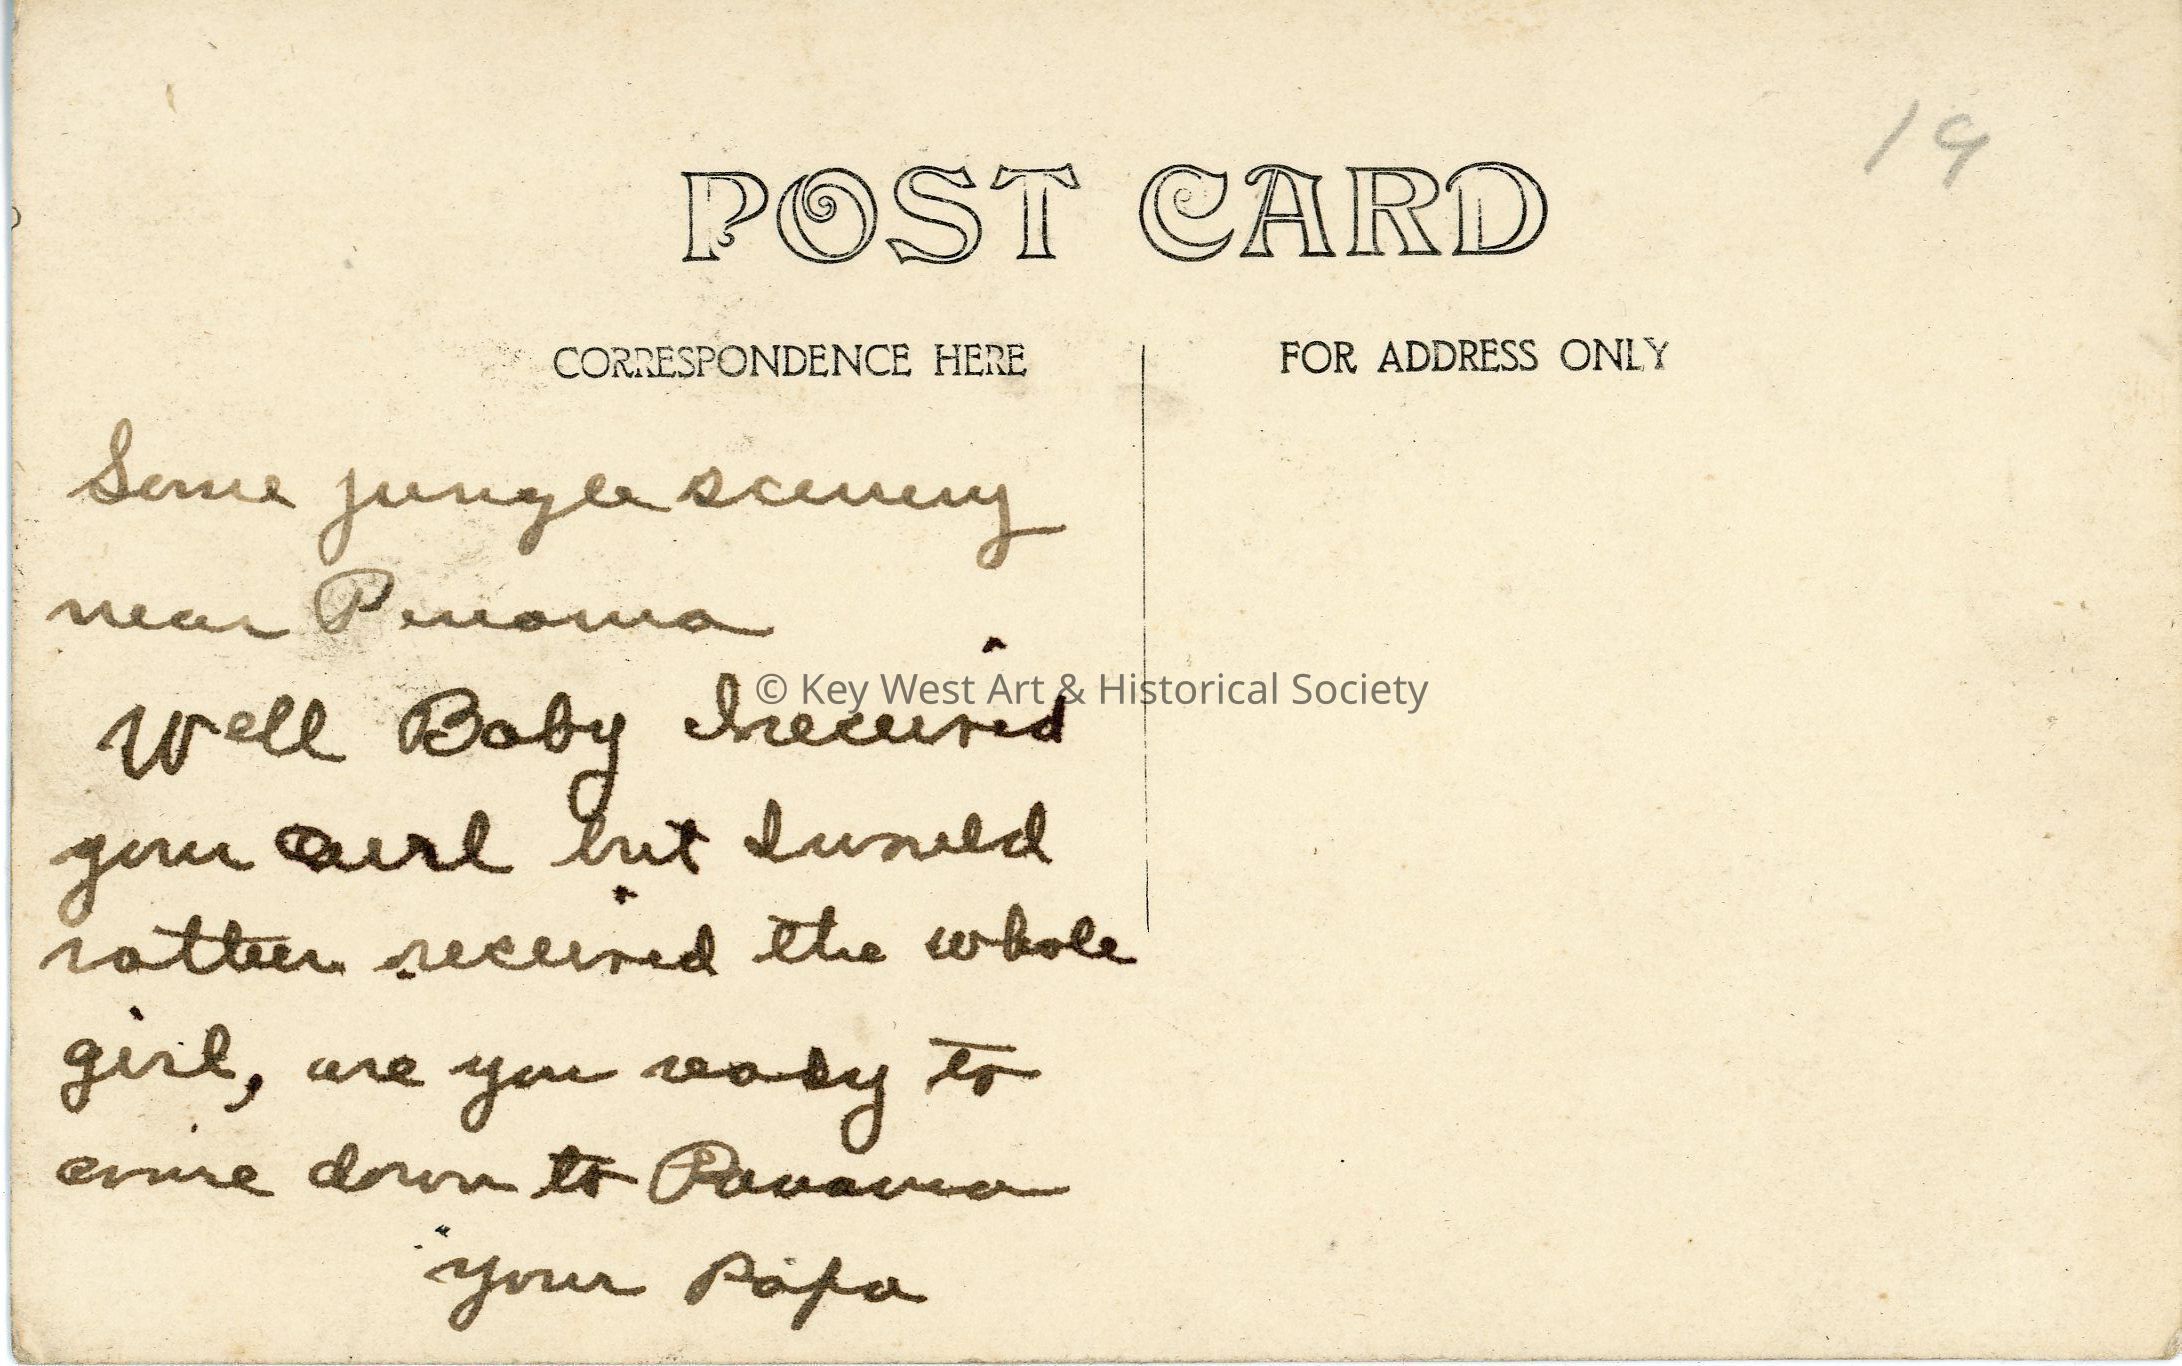 19
POST CARD
CORRESPONDENCE HERE
FOR ADDRESS ONLY
Some jungle scenery
near Penama
© Key West Art & Historical Society
Well Baby I received
your curl but I would
rather received the whole
girl, are you ready to
come down to Panama
your Papa